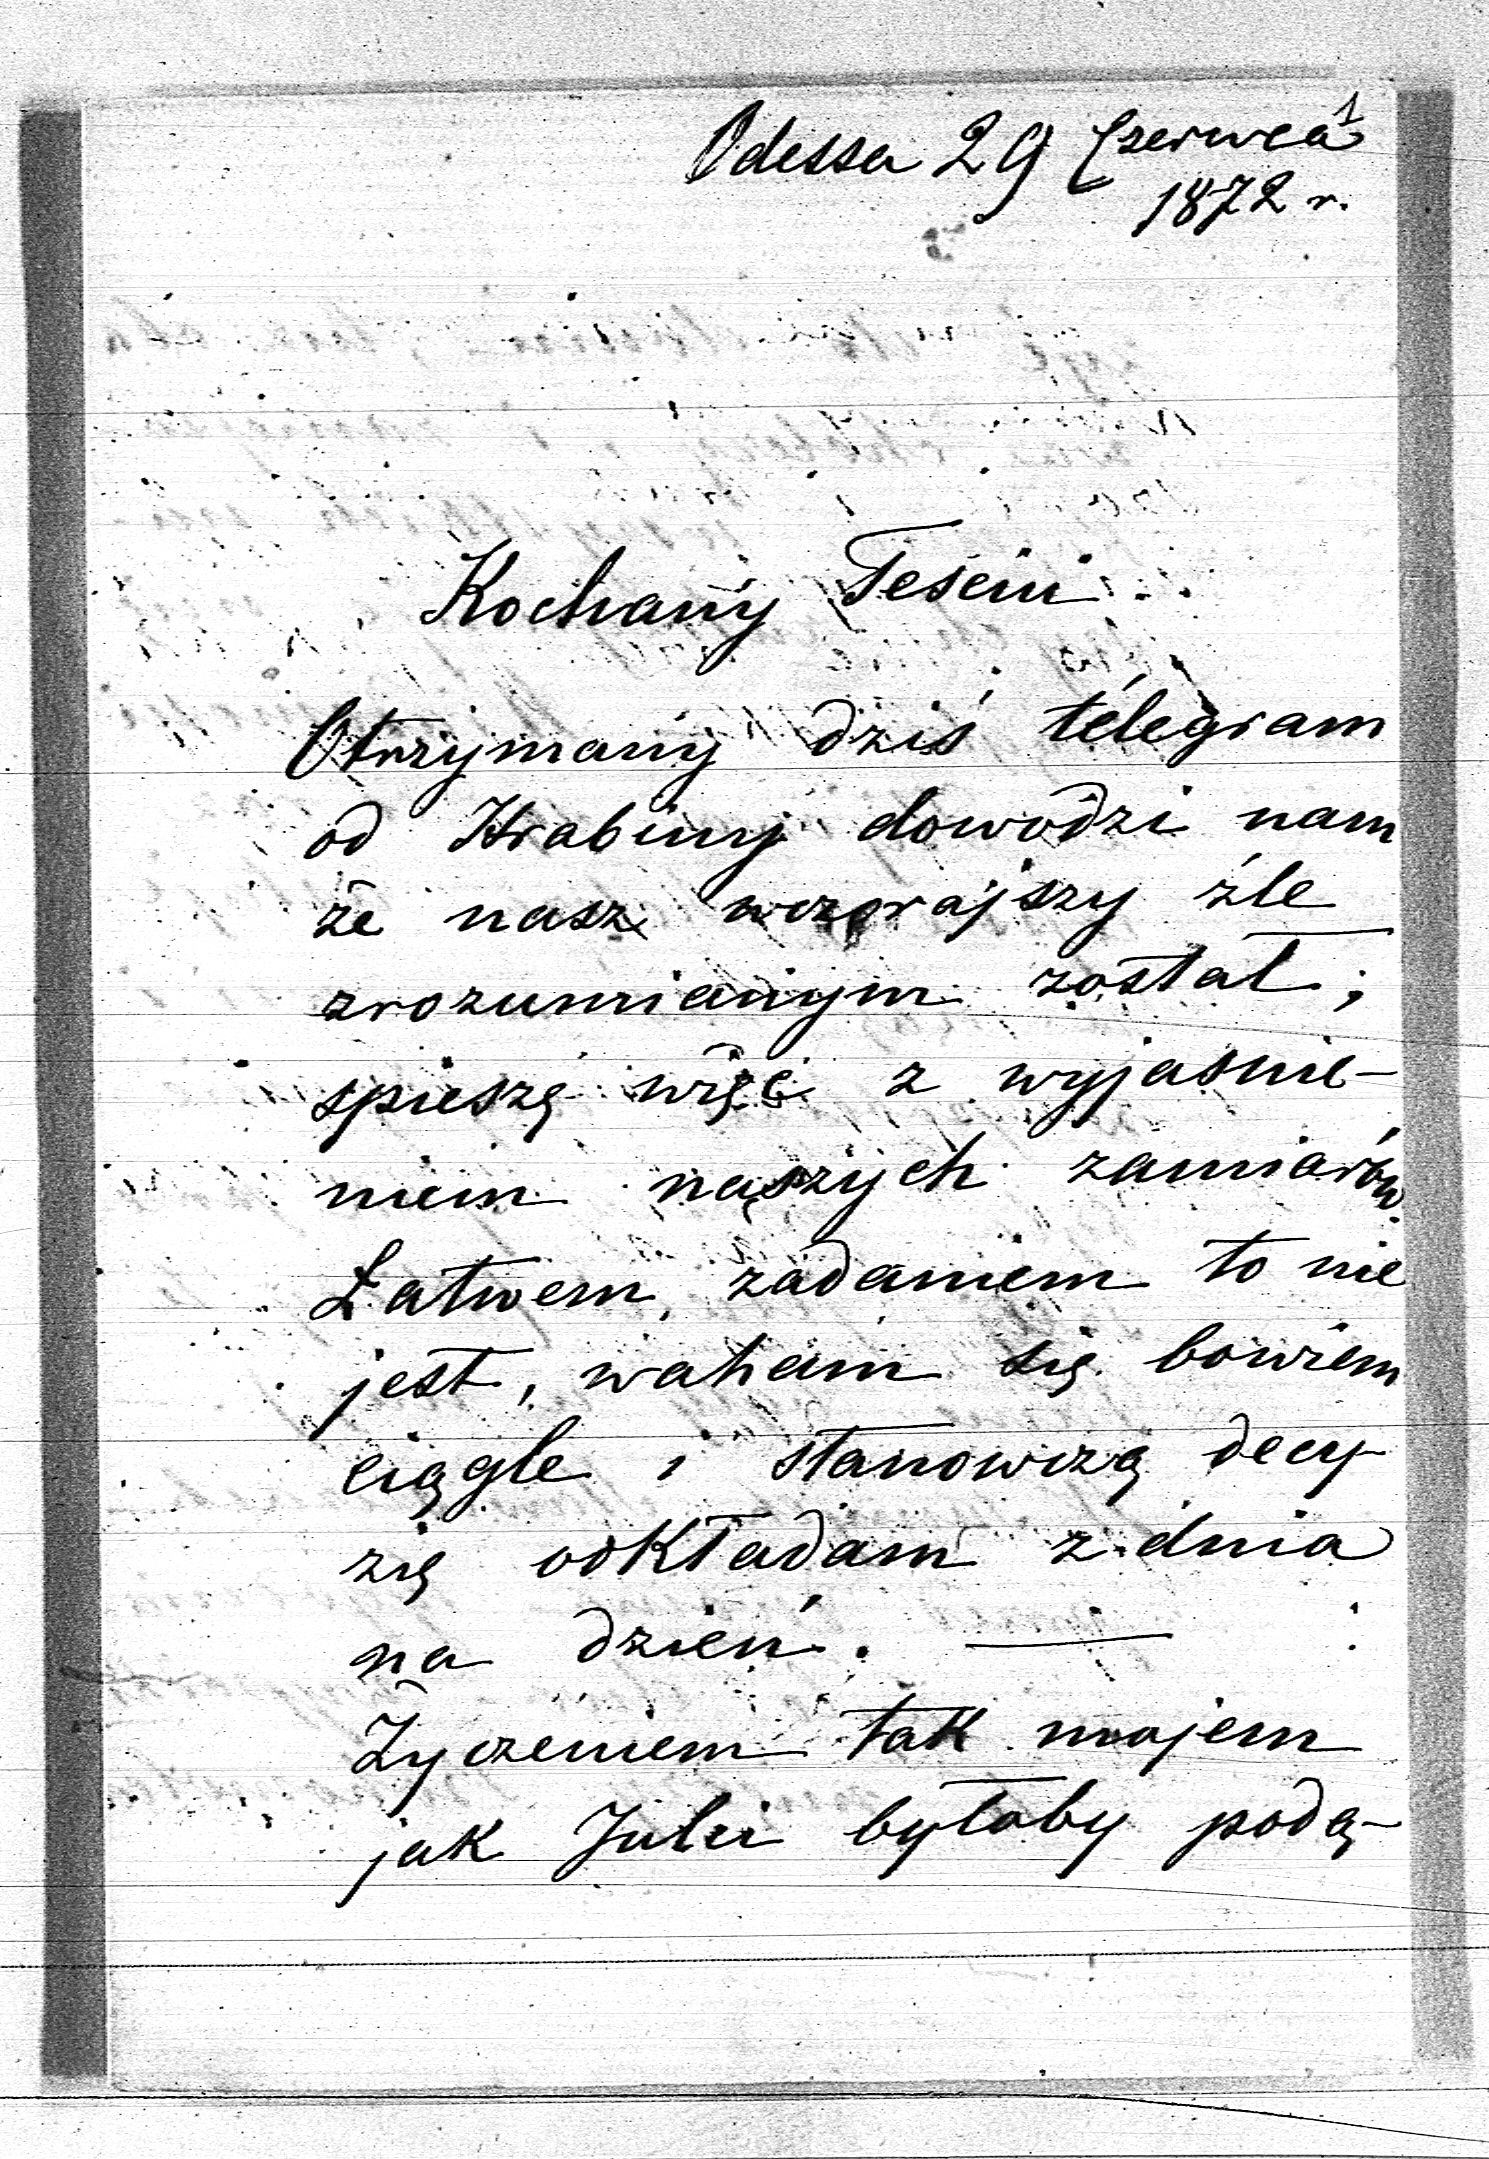 1
Odessa 29 Czerwca
1872 r.
Kochany Teściu
Otrzymany dziś telegram
od Hrabiny dowodzi nam
że nasz wczorajszy źle
zrozumianym został;
spieszę więc z wyjaśnie-
niem naszych zamiarów.
Łatwem zadaniem to nie
jest, waham się bowiem
ciągle i stanowczą decy-
zię odkładam z dnia
na dzień. —
Życzeniem tak mojem
jak Julii byłoby podą-